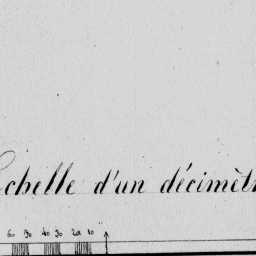 Echelle d'un décimèt
60 50 40 30 20 10